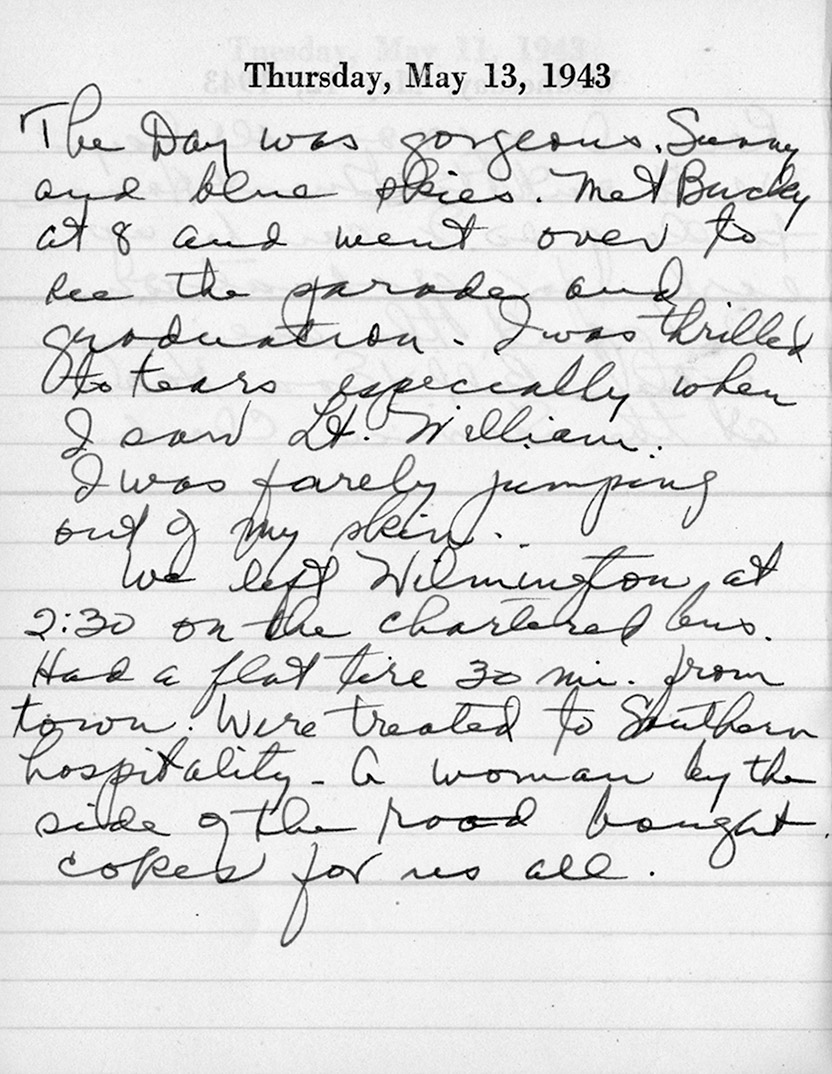 Thursday, May 13, 1943
The Day was gorgeous. Sunny
and blue skies. Met Bucky
at 8 and went over to
see the parade and
graduation. I was thrilled
to tears especially when
I saw Lt. William.
I was farely jumping
out of my skin.
We left Wilmington at
2:30 on the chartered bus.
Had a flat tire 30 mi. from
town. Were treated to Southern
hospitality - A woman by the
side of the road bought
cokes for us all.